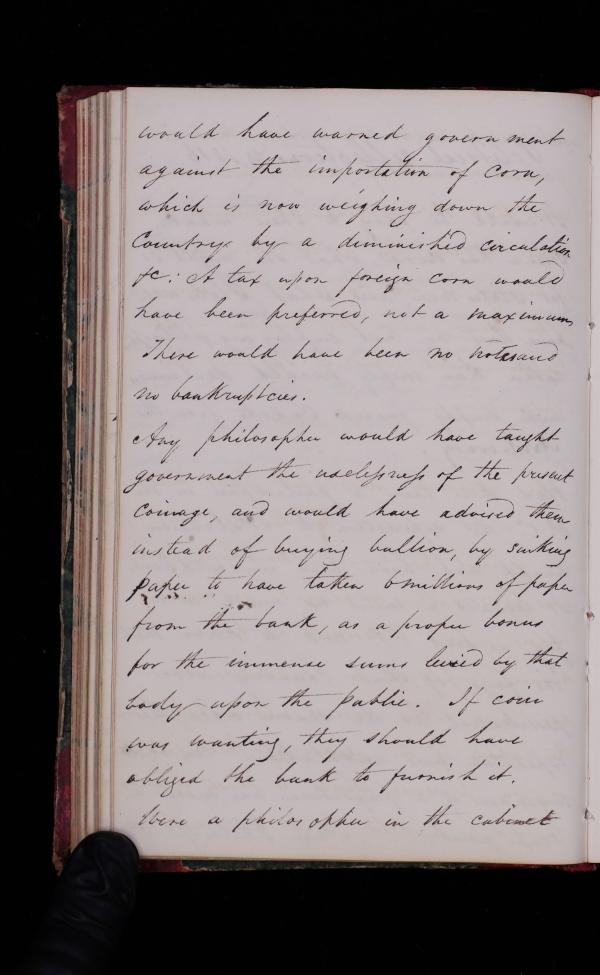 would have warned government
against the importation of Corn,
which is now weighing down the
Country by a diminished circulation
&c: A tax upon foreign corn would
have been preferred, not a maximum
There would have been no and
no bankruptcies.
Any philosopher would have taught
government the uselessness of the present
Coinage, and would have advised them
instead of buying bullion, by sinking
paper to have taken 6 millions of paper
from the bank, as a proper bonus
for the immense sums levied by that
body upon the public. If coin
was wanting, they should have
obliged the bank to furnish it.
Were a philosopher in the cabinet